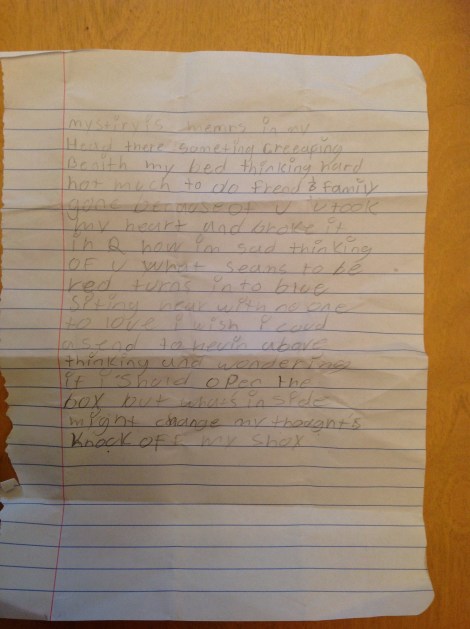 mystiryis memrs in my
Head there someting creeaping
Benith my bed thinking hard
not much to do frend & family
gone because of u u took
my heart and broke it
in 2 now im sad thinking
OF u what seans to be
red turns into blue
Siting hear with no one
to love i wish i coud
asend to hevin above
thinking and wondering
if i shold open the
box but whats in side
might change my thoughts
Knock off my shox